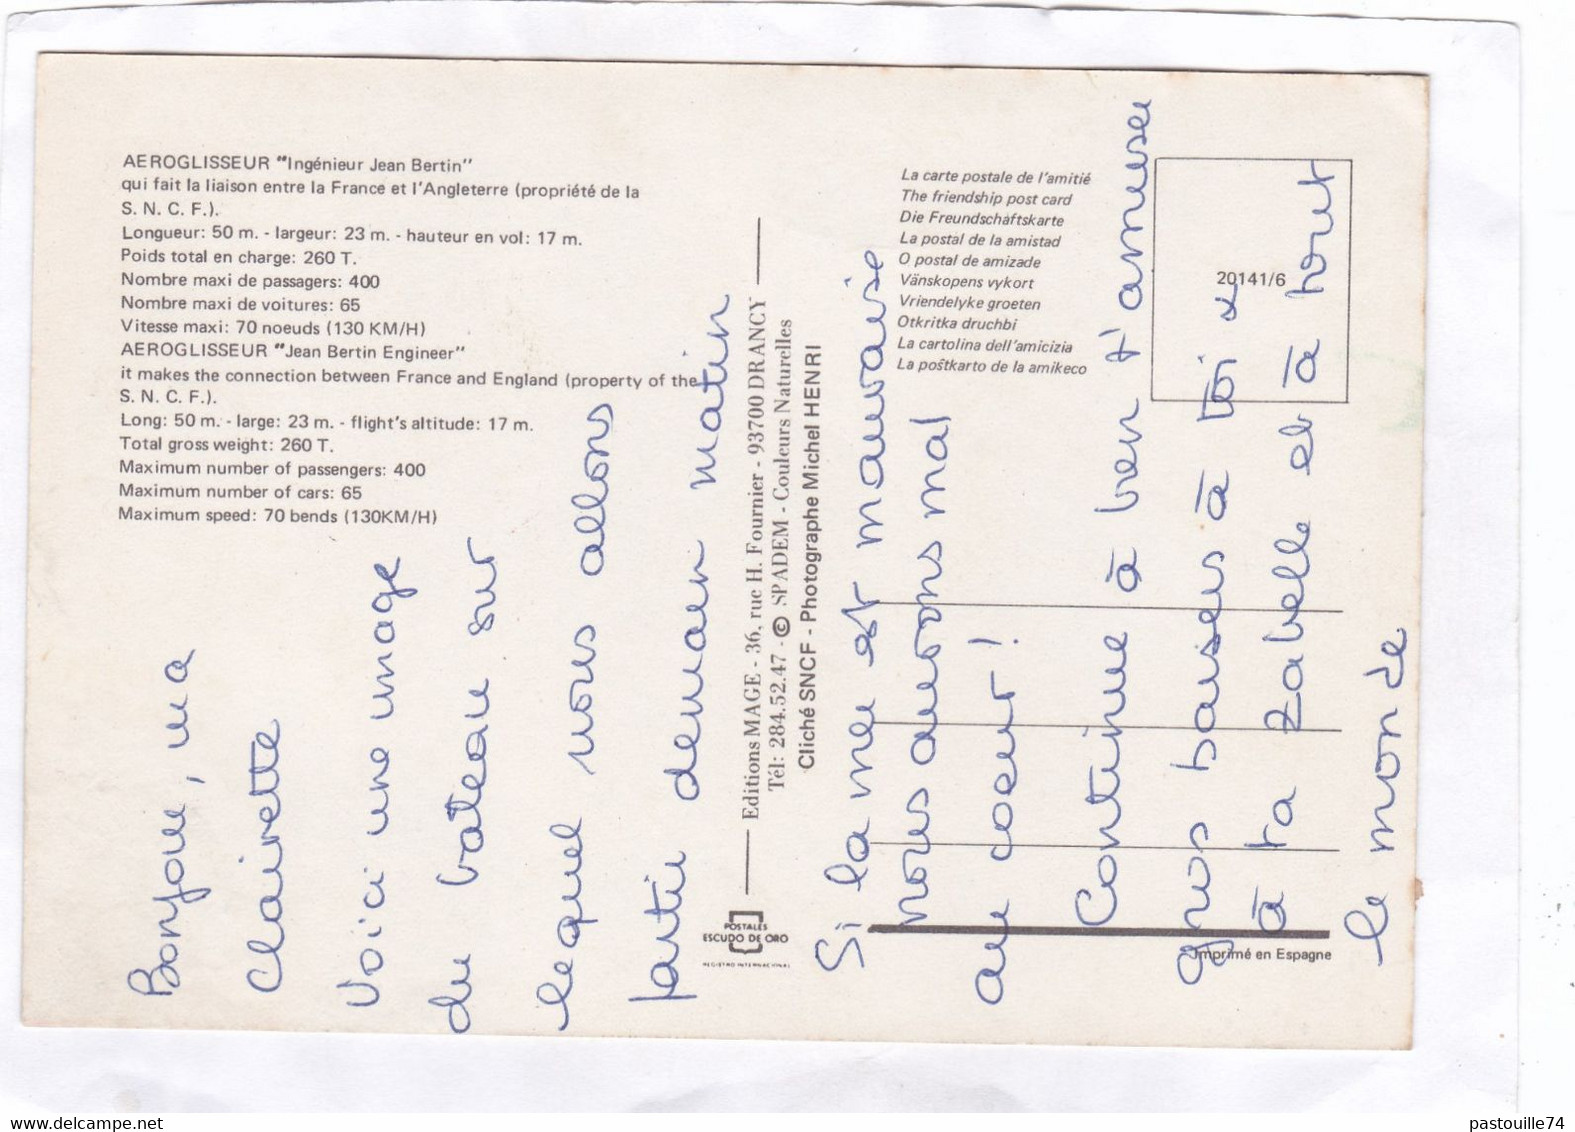 AEROGLISSEUR "Ingénieur Jean Bertin"
qui fait la liaison entre la France et l'Angleterre (propriété de la
S. N. C. F.).
Longueur: 50 m. - largeur: 23 m. - hauteur en vol: 17 m.
Poids total en charge: 260 T.
Nombre maxi de passagers: 400
Nombre maxi de voitures: 65
Vitesse maxi: 70 noeuds (130 KM/H)
AEROGLISSEUR "Jean Bertin Engineer"
it makes the connection between France and England (property of the
S. N. C. F.).
Long: 50 m. - large: 23 m. - flight's altitude: 17 m.
Total gross weight: 260 T.
Maximum number of passengers: 400
Maximum number of cars: 65
Maximum speed: 70 bends (130KM/H)
Bonjour, ma
Clairette
Voici une image
du bâteau sur
lequel nous allons
partir demain matin
Editions MAGE - 36, rue H. Fournier - 93700 DRANCY
Tél: 284.52.47 - © SPADEM - Couleurs Naturelles
Cliché SNCF - Photographe Michel HENRI
POSTALES
ESCUDO DE ORO
REGISTRO INTERNACIONAL
La carte postale de l'amitié
The friendship post card
Die Freundschaftskarte
La postal de la amistad
O postal de amizade
Vänskopens vykort
Vriendelyke groeten
Otkritka druchbi
La cartolina dell'amicizia
La poŝtkarto de la amikeco
20141/6
Si la mer est mauvaise
nous aurons mal
au coeur !
Continue à bien t'amuser
gros baisers à toi &
à ta Zabelle et à tout
le monde
Imprimé en Espagne
www.delcampe.net
pastouille74